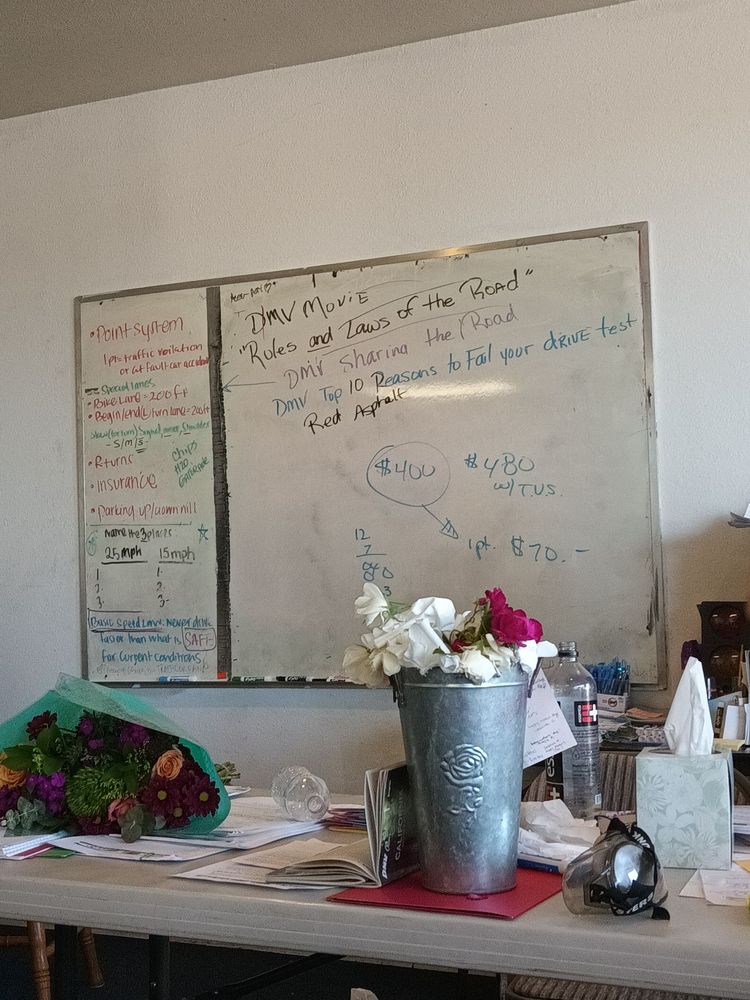 • Point system
1pt = traffic violation
or at fault car accident
Special lanes
• Bike Lane = 200 ft
• Begin/end (L) turn lane = 200ft
Signal, mirror, shoulder
- S/m/s -
chips
H20
• Returns
• Insurance
• Parking up/down hill
Name the 3 places
25mph 15mph
1. 1.
2. 2.
3. 3.
Basic Speed Law: Never drive
faster than what is SAFE
for current conditions
DMV Movie
"Rules and Laws of the Road"
DMV Sharing the Road
DMV Top 10 Reasons to Fail your dRIVE test
Red Asphalt
$400
$480
w/ T.V.S.
1pt. $70.-
12
7
DMV
CALIFOR